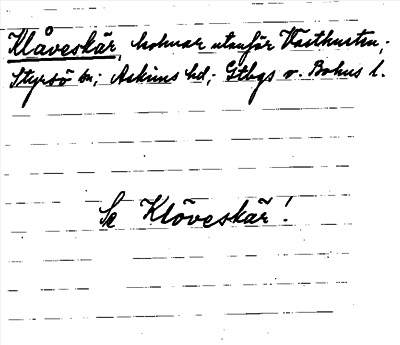 Klåveskär, holmar utanför Västkusten;
Styrsö sn; Askims hd; Gtbgs o. Bohus l.
Se Klöveskär!